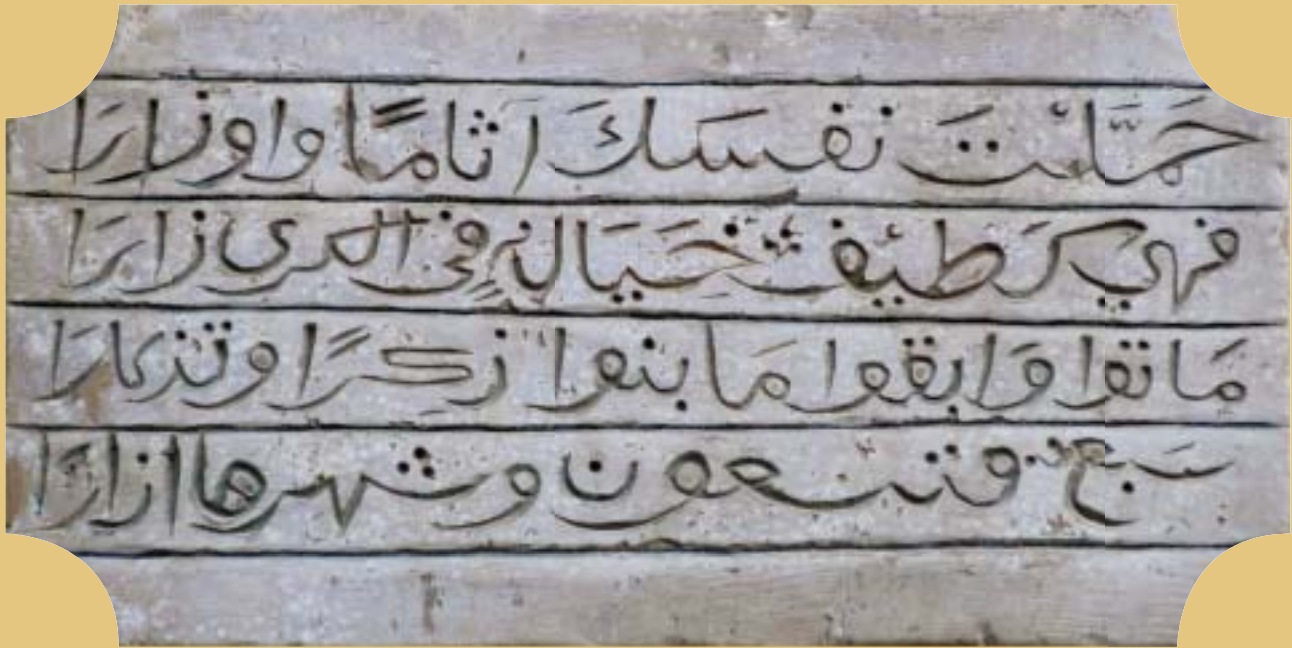 حَمَّلْتَ نفسَكَ آثامًا واوزارَا
فهي كَطيف خَيَالهٍ في الدى زارَا
مَاتوا وَابقوا مَا بنوا ذكرًا وتذكارَا
سَبعٌ وتسعون وشهرها اازارَا